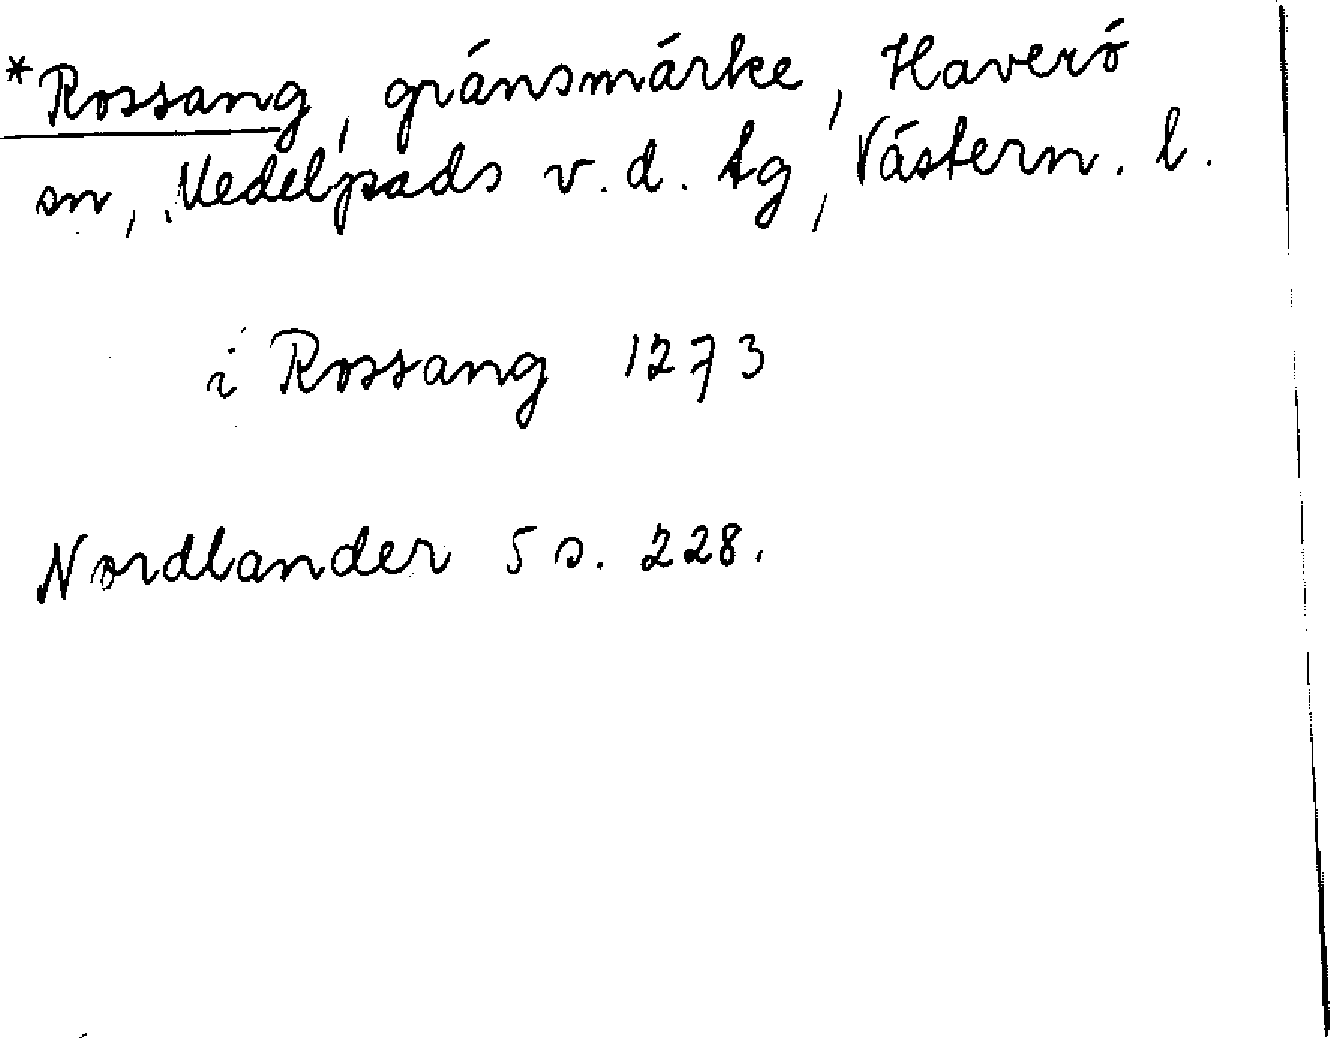 *Rossang, gränsmärke, Haverö
sn, Medelpads v. d. tg, Västern. l.
i Rossang 1273
Nordlander 5 s. 228.